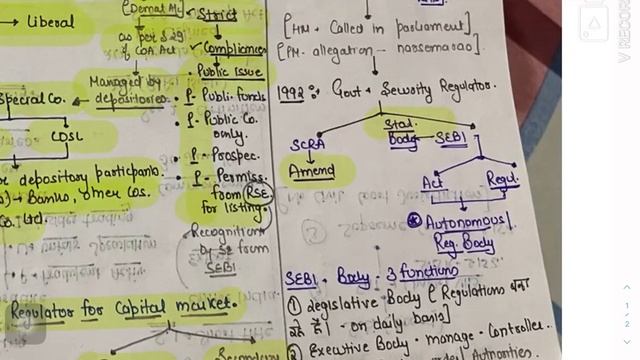 (Demat A/c)
Strict
→ Liberal
as per § 29
of COA Act
Compliances
Public Issue
Managed by
depositories
Special Co.
P - Publi. funds
P - Public Co.
only.
CDSL
P - Prospec.
P - Permiss.
from RSE
for listing.
depository participants.
→ Banks, other Cos.
Co. Ltd.
Recognition
by SE from
SEBI
Regulator for Capital market.
Secondary
[HM + Called in parliament]
[PM. allegation -
1992 :- Govt + Security Regulator.
SCRA
Stat.
Body
SEBI
Amend
Act
Regul.
Autonomous/
Reg. Body
SEBI - Body - 3 functions
① Legislative - Body [Regulations बना
रहे हैं। - on daily basis]
② Executive Body - manage - Controller.
Authorities
1
/
2
V RECOR